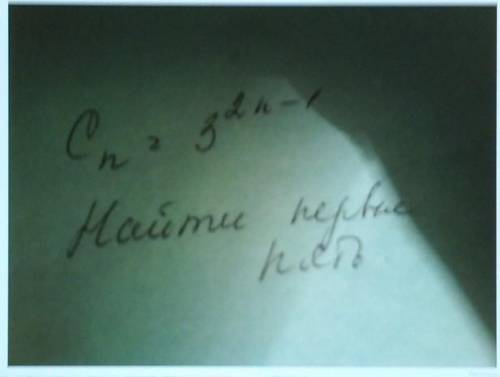 Cn = 3^2n-1
Найти первые
пять